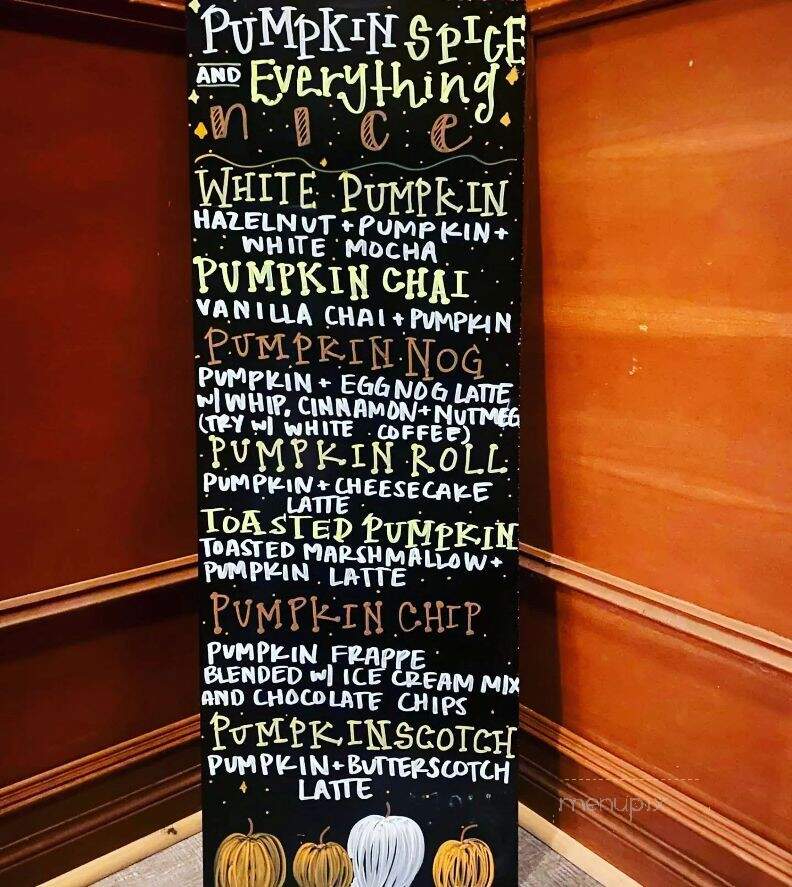 PUMPKIN SPICE
AND Everything
nice
WHITE PUMPKIN
HAZELNUT + PUMPKIN +
WHITE MOCHA
PUMPKIN CHAI
VANILLA CHAI + PUMPKIN
PUMPKIN NOG
PUMPKIN + EGGNOG LATTE
W/ WHIP, CINNAMON + NUTMEG
(TRY W/ WHITE COFFEE)
PUMPKIN ROLL
PUMPKIN + CHEESECAKE
LATTE
TOASTED PUMPKIN
TOASTED MARSHMALLOW +
PUMPKIN LATTE
PUMPKIN CHIP
PUMPKIN FRAPPE
BLENDED W/ ICE CREAM MIX
AND CHOCOLATE CHIPS
PUMPKINSCOTCH
PUMPKIN + BUTTERSCOTCH
LATTE
menupix